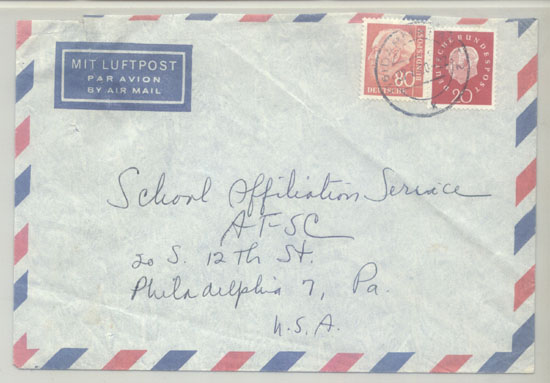 MIT LUFTPOST
PAR AVION
BY AIR MAIL
80
DEUTSCHE
BUNDESPOST
DEUTSCHE BUNDESPOST
20
School Affiliation Service
AFSC
20 S. 12th St.
Philadelphia 7, Pa.
U.S.A.